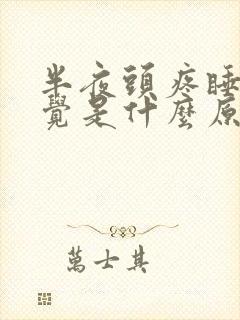 半夜頭疼睡
覺是什麼原
萬士其